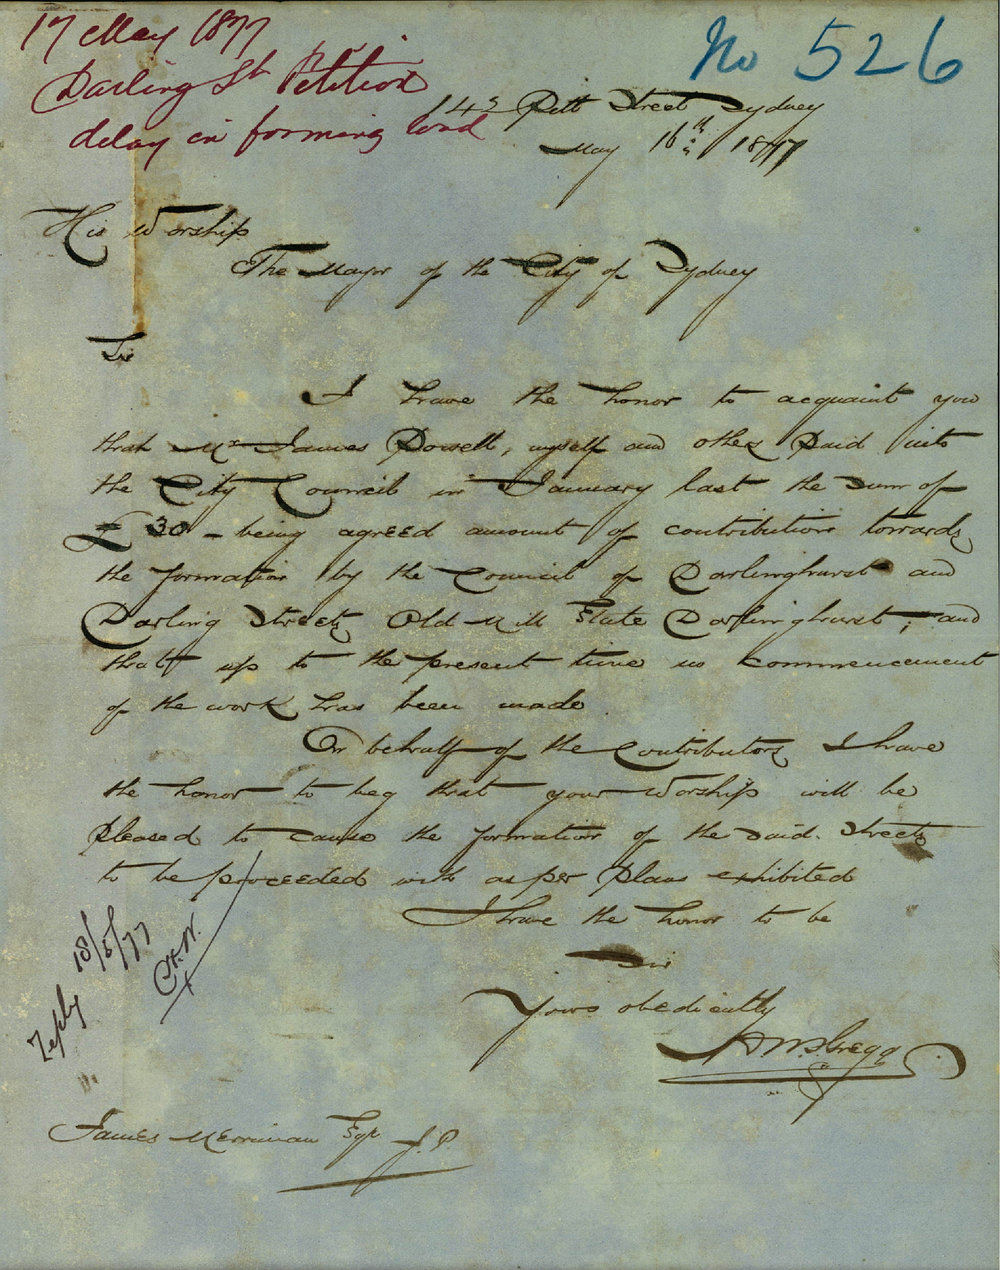 17 May 1877
Darling St Petition
delay in forming road
No 526
Pitt Street Sydney
May 16th 1877
His Worship
The Mayor of the City of Sydney
Sir
I have the honor to acquaint you
that Mr James Powell, myself and others Paid into
the City Council in January last the sum of
£30 - being agreed amount of contribution towards
the formation by the Council of Darlinghurst and
Darling Streets Old Mill Estate Darlinghurst; and
that up to the present time no commencement
of the work has been made
On behalf of the Contributors I have
the honor to beg that your Worship will be
pleased to cause the formation of the said Streets
to be proceeded with as per plans exhibited
I have the honor to be
Sir
Yours obediently
Gregg
Reply 18/5/77
James Merriman Esqr J.P.